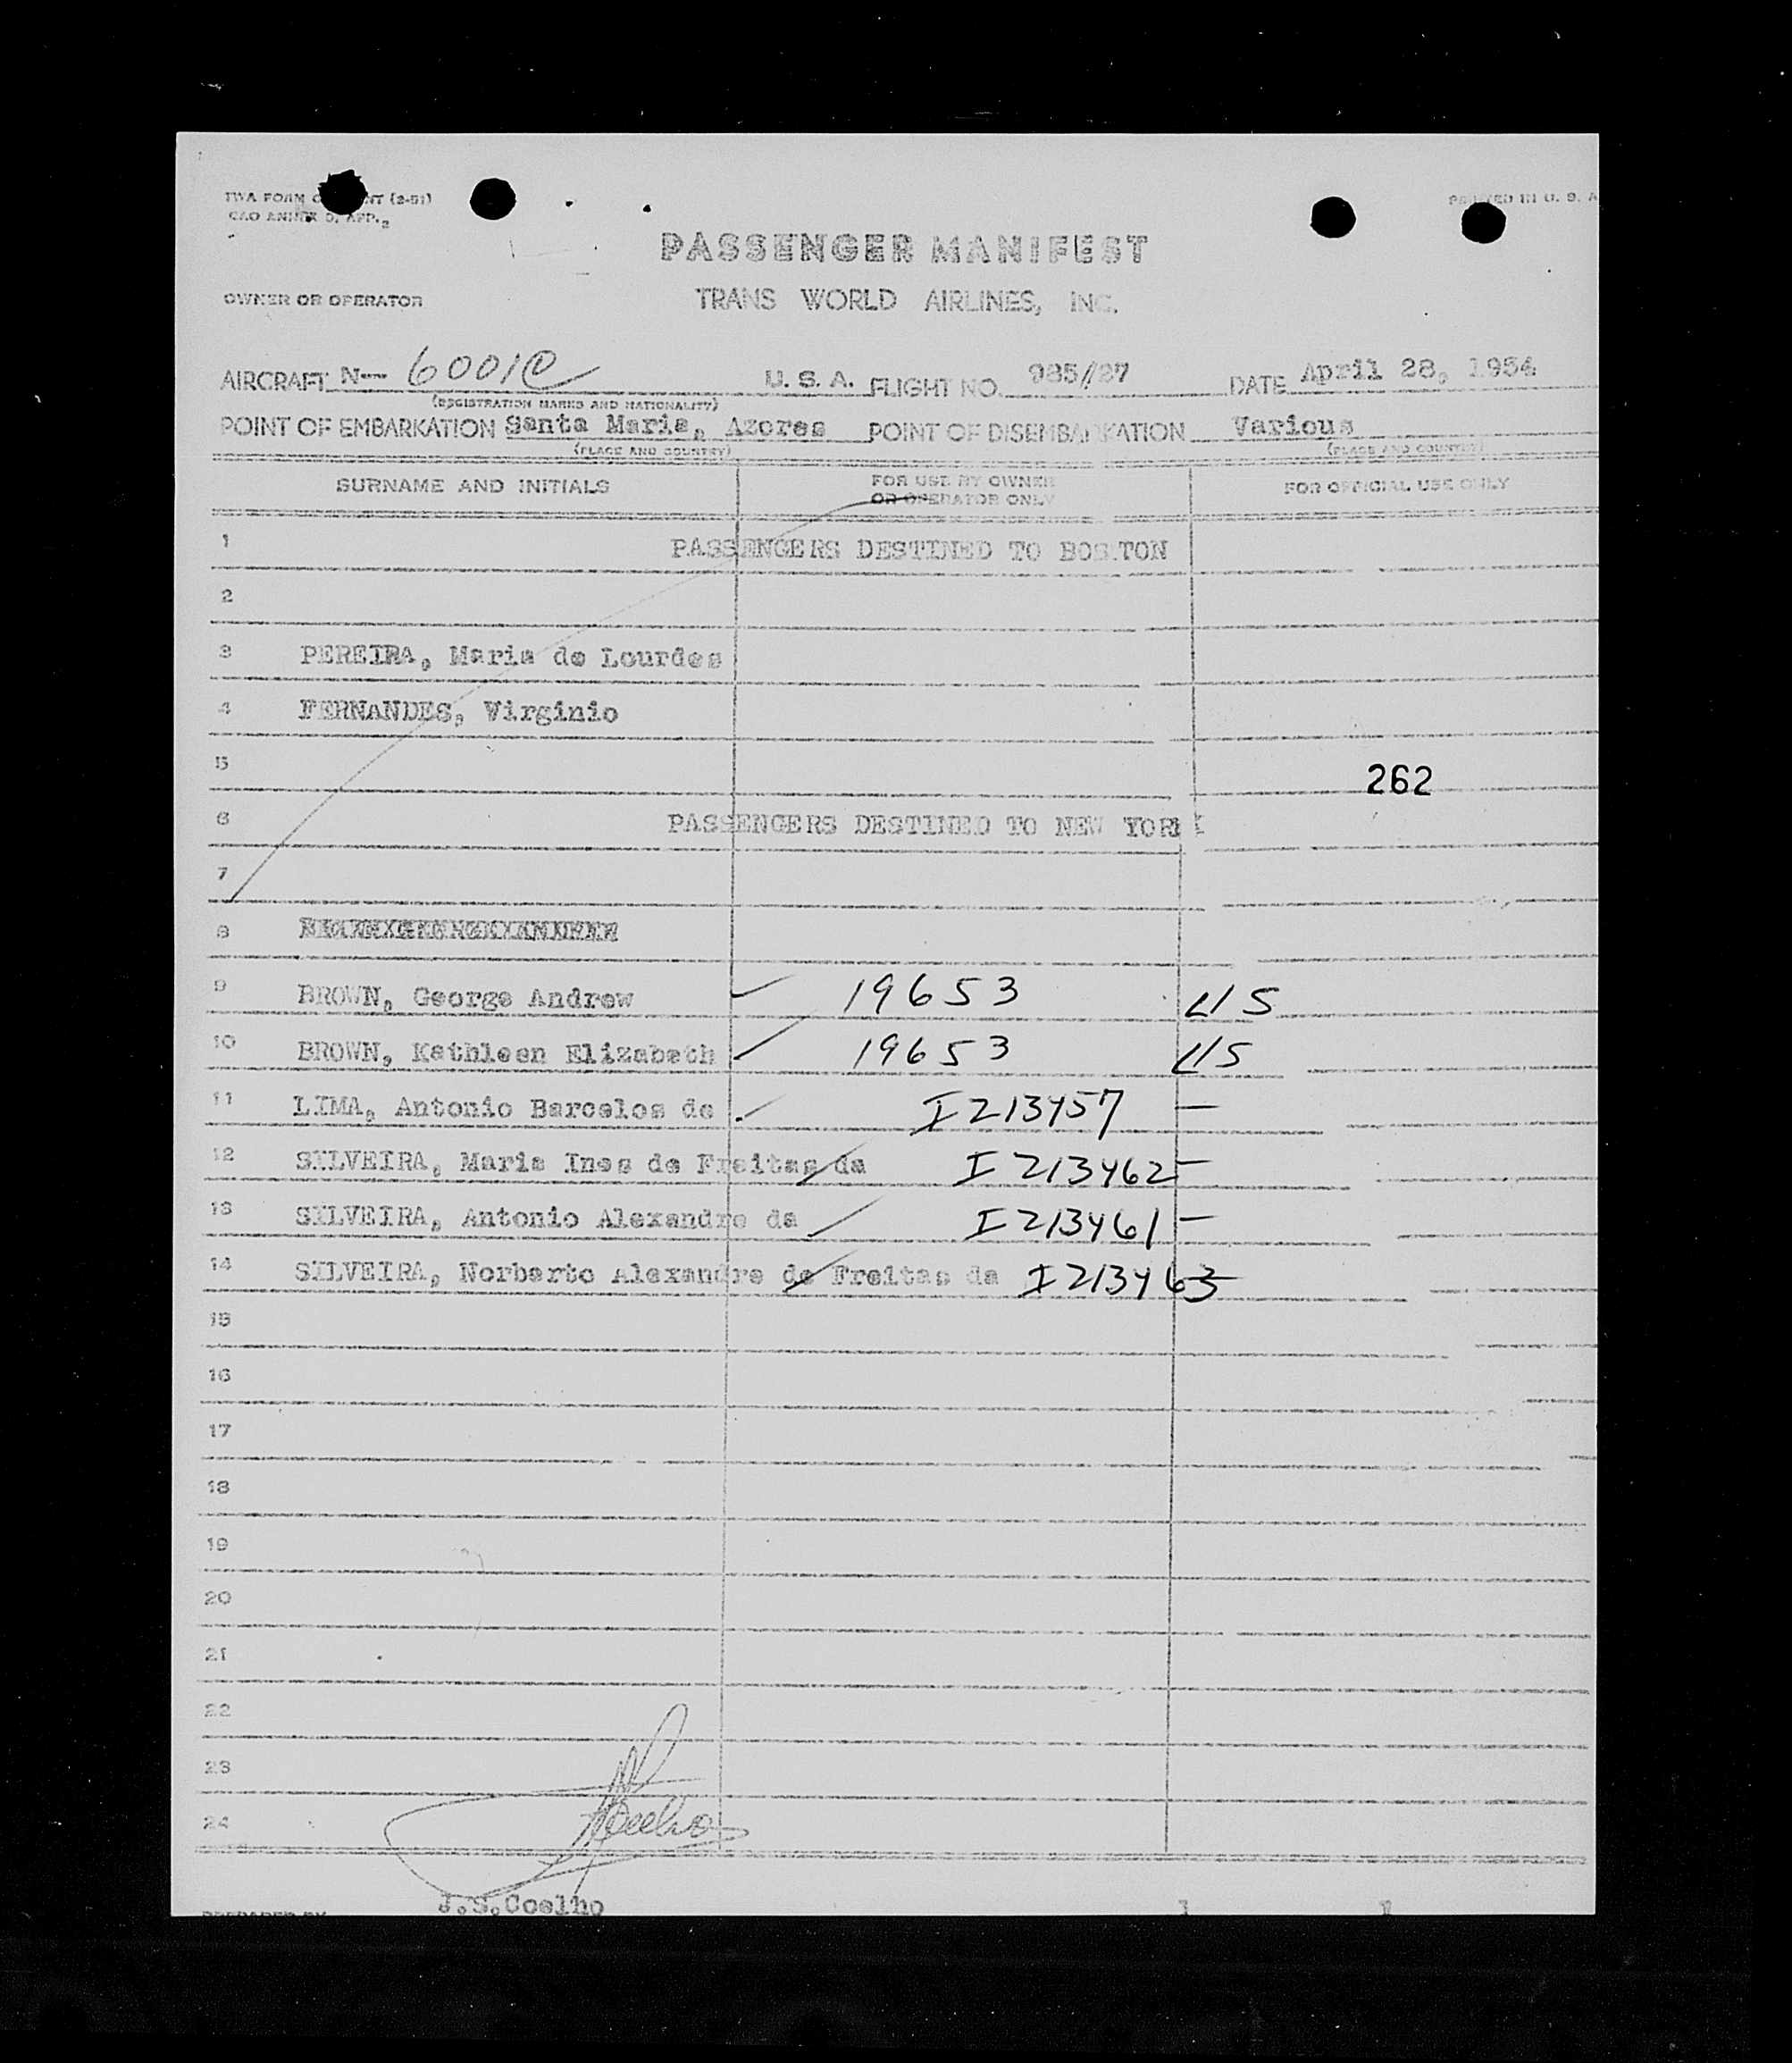 TWA FORM (2-51)
CAO ANNEX 9, APP. 2
PRINTED IN U. S. A
PASSENGER MANIFEST
OWNER OR OPERATOR TRANS WORLD AIRLINES, INC.
AIRCRAFT N--- 6001C U. S. A. FLIGHT NO. 985//27 DATE April 28, 1954
(REGISTRATION MARKS AND NATIONALITY)
POINT OF EMBARKATION Santa Maria, Azores POINT OF DISEMBARKATION Various
(PLACE AND COUNTRY) (PLACE AND COUNTRY)
SURNAME AND INITIALS FOR USE BY OWNER OR OPERATOR ONLY FOR OFFICIAL USE ONLY
1 PASSENGERS DESTINED TO BOSTON
2
3 PEREIRA, Maria de Lourdes
4 FERNANDES, Virginio
5 262
6 PASSENGERS DESTINED TO NEW YORK
7
8
9 BROWN, George Andrew 19653 US
10 BROWN, Kathleen Elizabeth 19653 US
11 LIMA, Antonio Barcelos de I 213457 —
12 SILVEIRA, Maria Ines de Freitas da I 213462 —
13 SILVEIRA, Antonio Alexandre da I 213461 —
14 SILVEIRA, Norberto Alexandre de Freitas da I 213463
15
16
17
18
19
20
21
22
23
24
J.S.Coelho
PREPARED BY